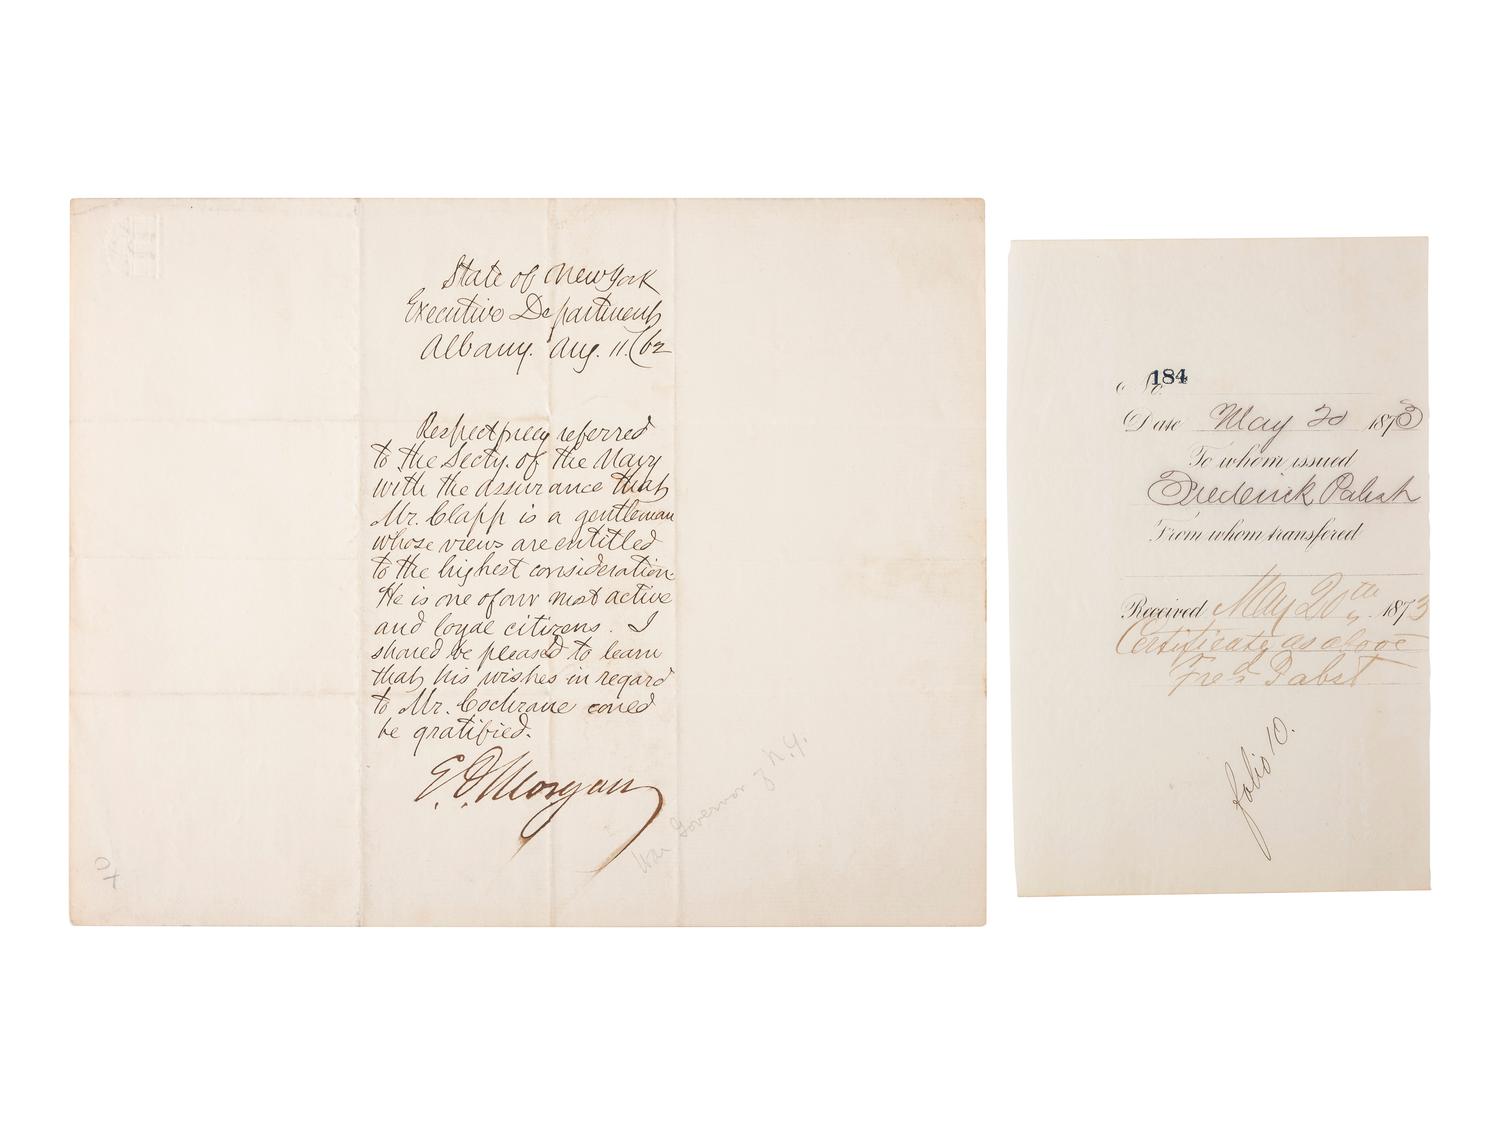 State of New York
Executive Department
Albany. Aug. 11. /62
Respectfully referred
to the Secty. of the Navy
with the assurance that
Mr. Clapp is a gentleman
whose views are entitled
to the highest consideration.
He is one of our most active
and loyal citizens. I
should be pleased to learn
that his wishes in regard
to Mr. Cochrane could
be gratified.
E. D. Morgan
War Governor of N.Y.
No. 184
Date May 20 1873
To whom issued
Frederick Pabst
From whom transfered
Received May 20th, 1873
Certificate as above
Fred Pabst
folio 10.